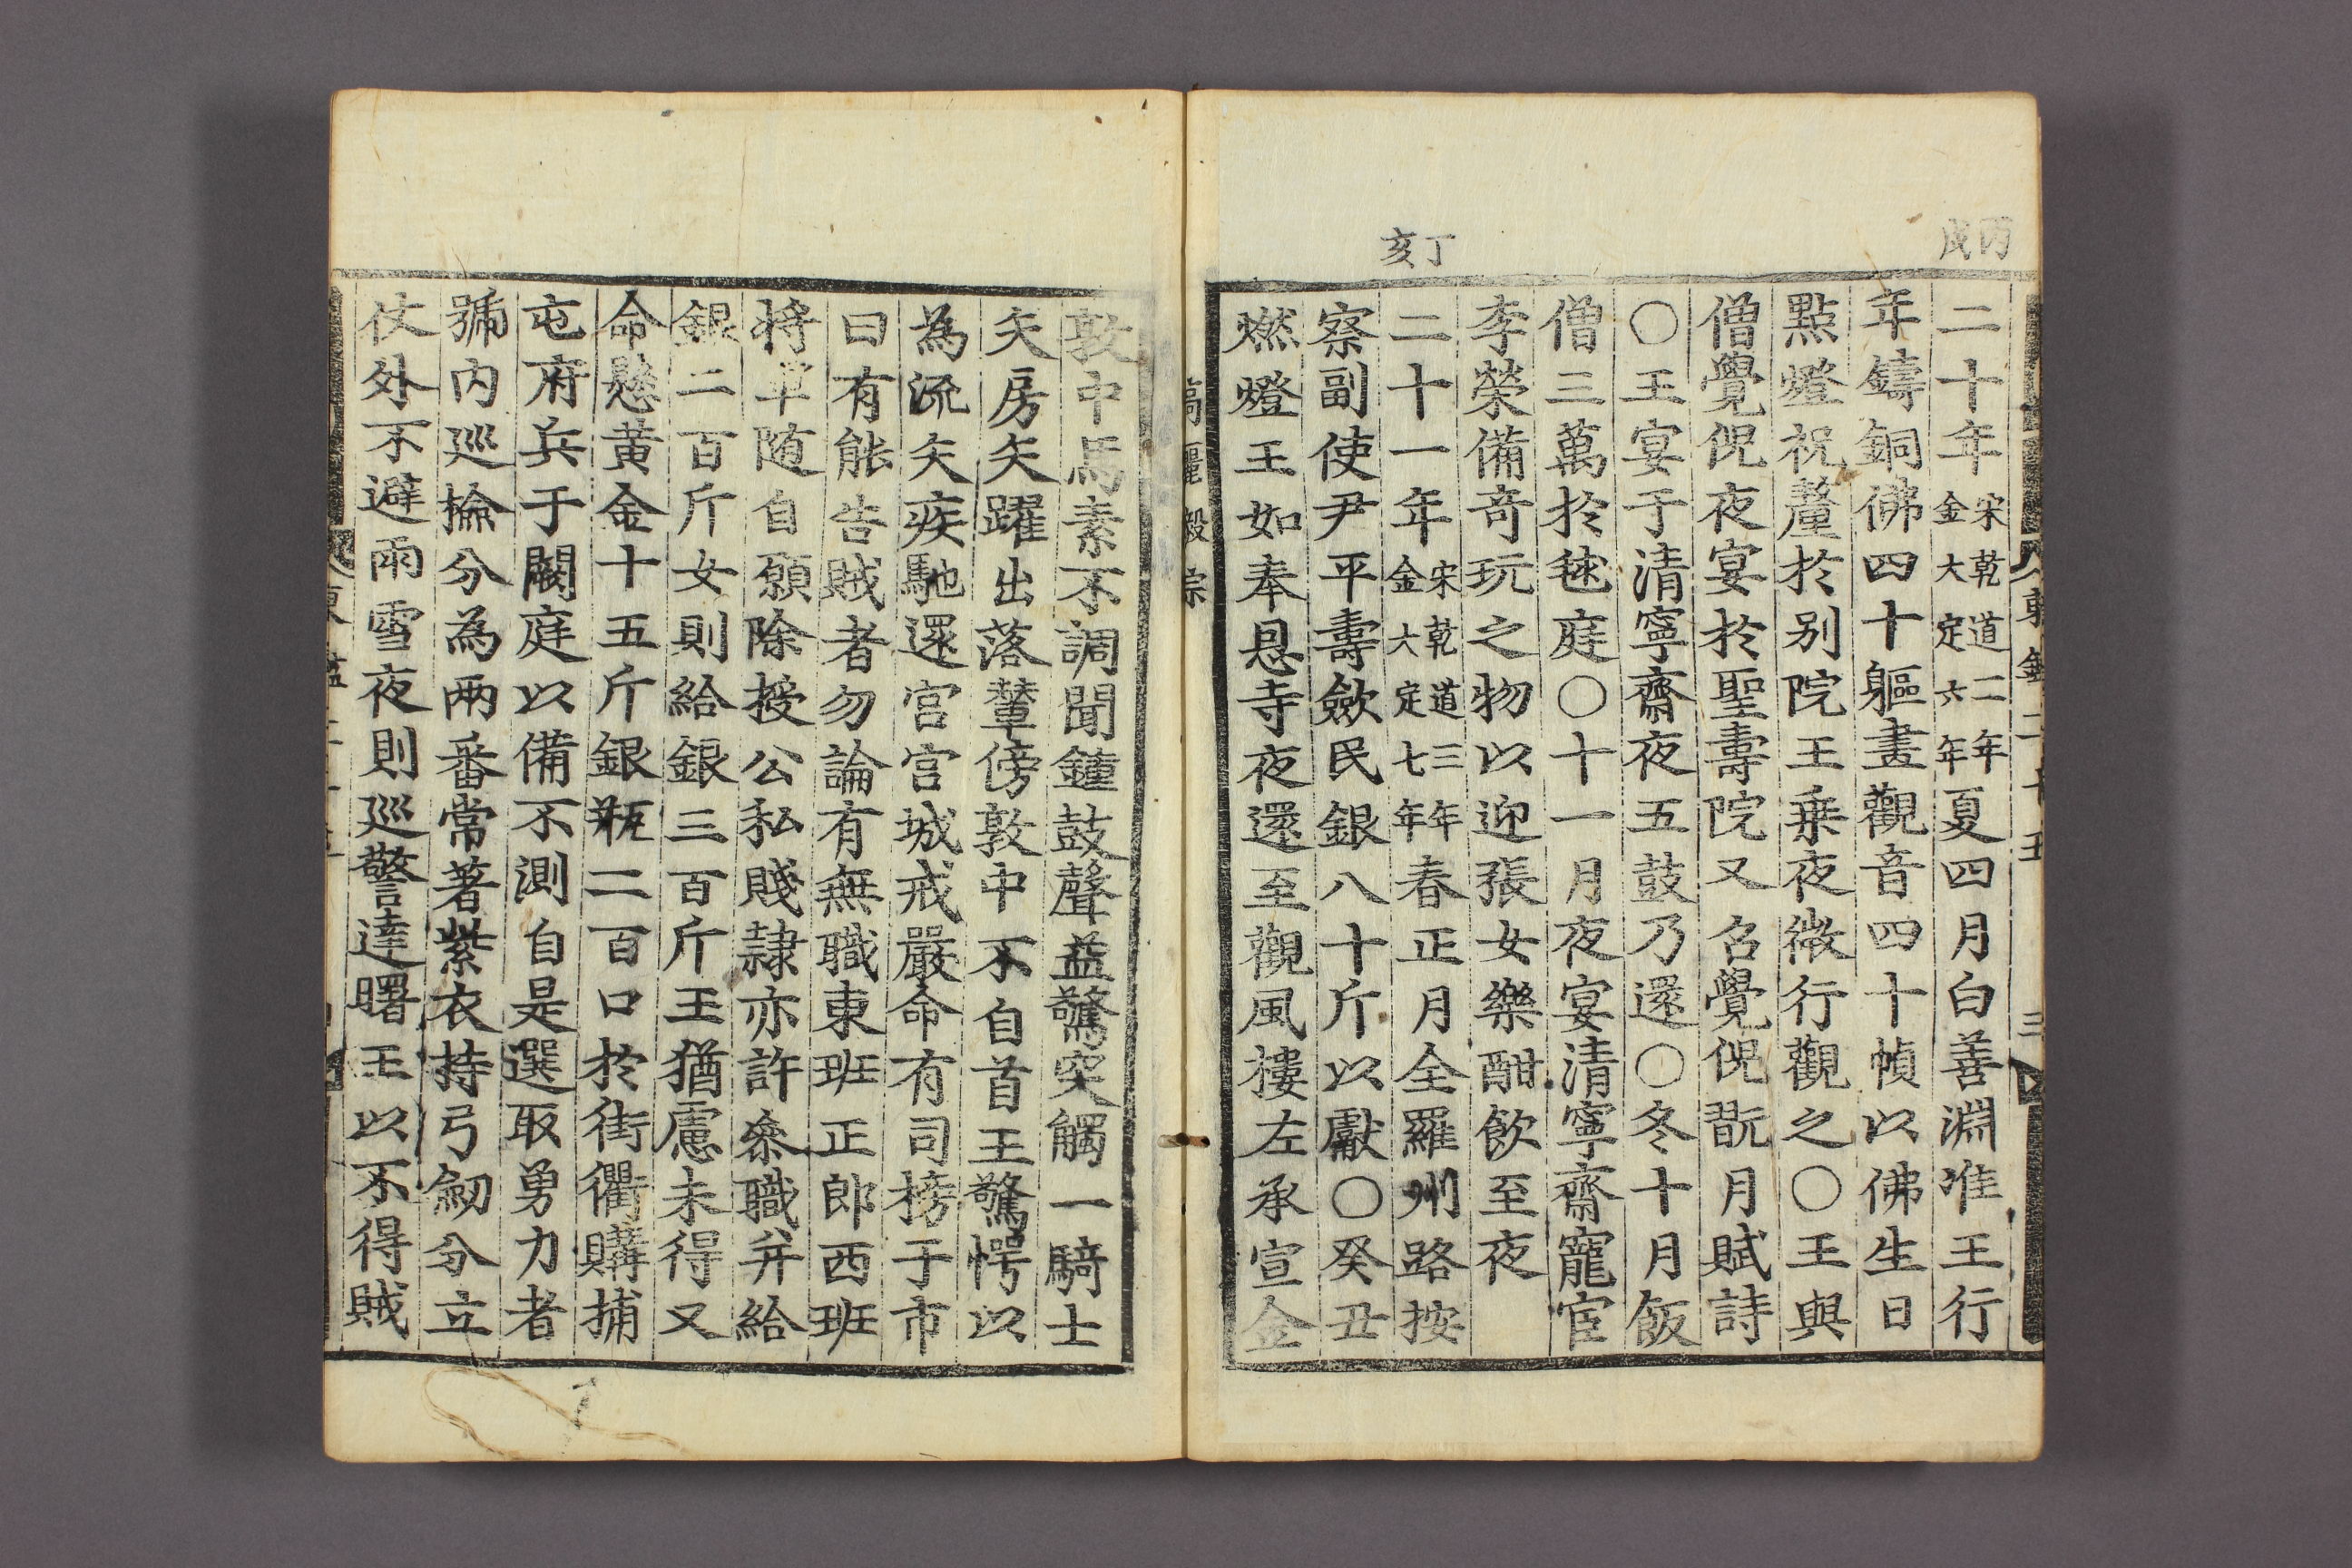 丙戌
二十年宋乾道二年金大定六年夏四月白善淵准王行
年鑄銅佛四十軀畫觀音四十幀以佛生日
點燈祝釐於别院王乗夜微行觀之○王與
僧覺倪夜宴於聖壽院又召覺倪翫月賦詩
○王宴于清寧齋夜五鼓乃還○冬十月飯
僧三萬於毬庭○十一月夜宴清寧齋寵宦
李榮備奇玩之物以迎張女樂酣飲至夜
丁亥
二十一年宋乾道三年金大定七年春正月全羅州路按
察副使尹平壽斂民銀八十斤以獻○癸丑
燃燈王如奉恩寺夜還至觀風樓左承宣金
高麗毅宗
敦中馬素不調聞鐘鼓聲益驚突觸一騎士
矢房矢躍出落輦傍敦中不自首王驚愕以
為流矢疾馳還宫宫城戒嚴命有司榜于市
曰有能告賊者勿論有無職東班正郎西班
将軍随自願除授公私賤隷亦許叅職并給
銀二百斤女則給銀三百斤王猶慮未得又
命懸黄金十五斤銀瓶二百口於街衢購捕
屯府兵于闕庭以備不測自是選取勇力者
號内巡撿分為兩番常著紫衣持弓劒分立
仗外不避雨雪夜則巡警達曙王以不得賊